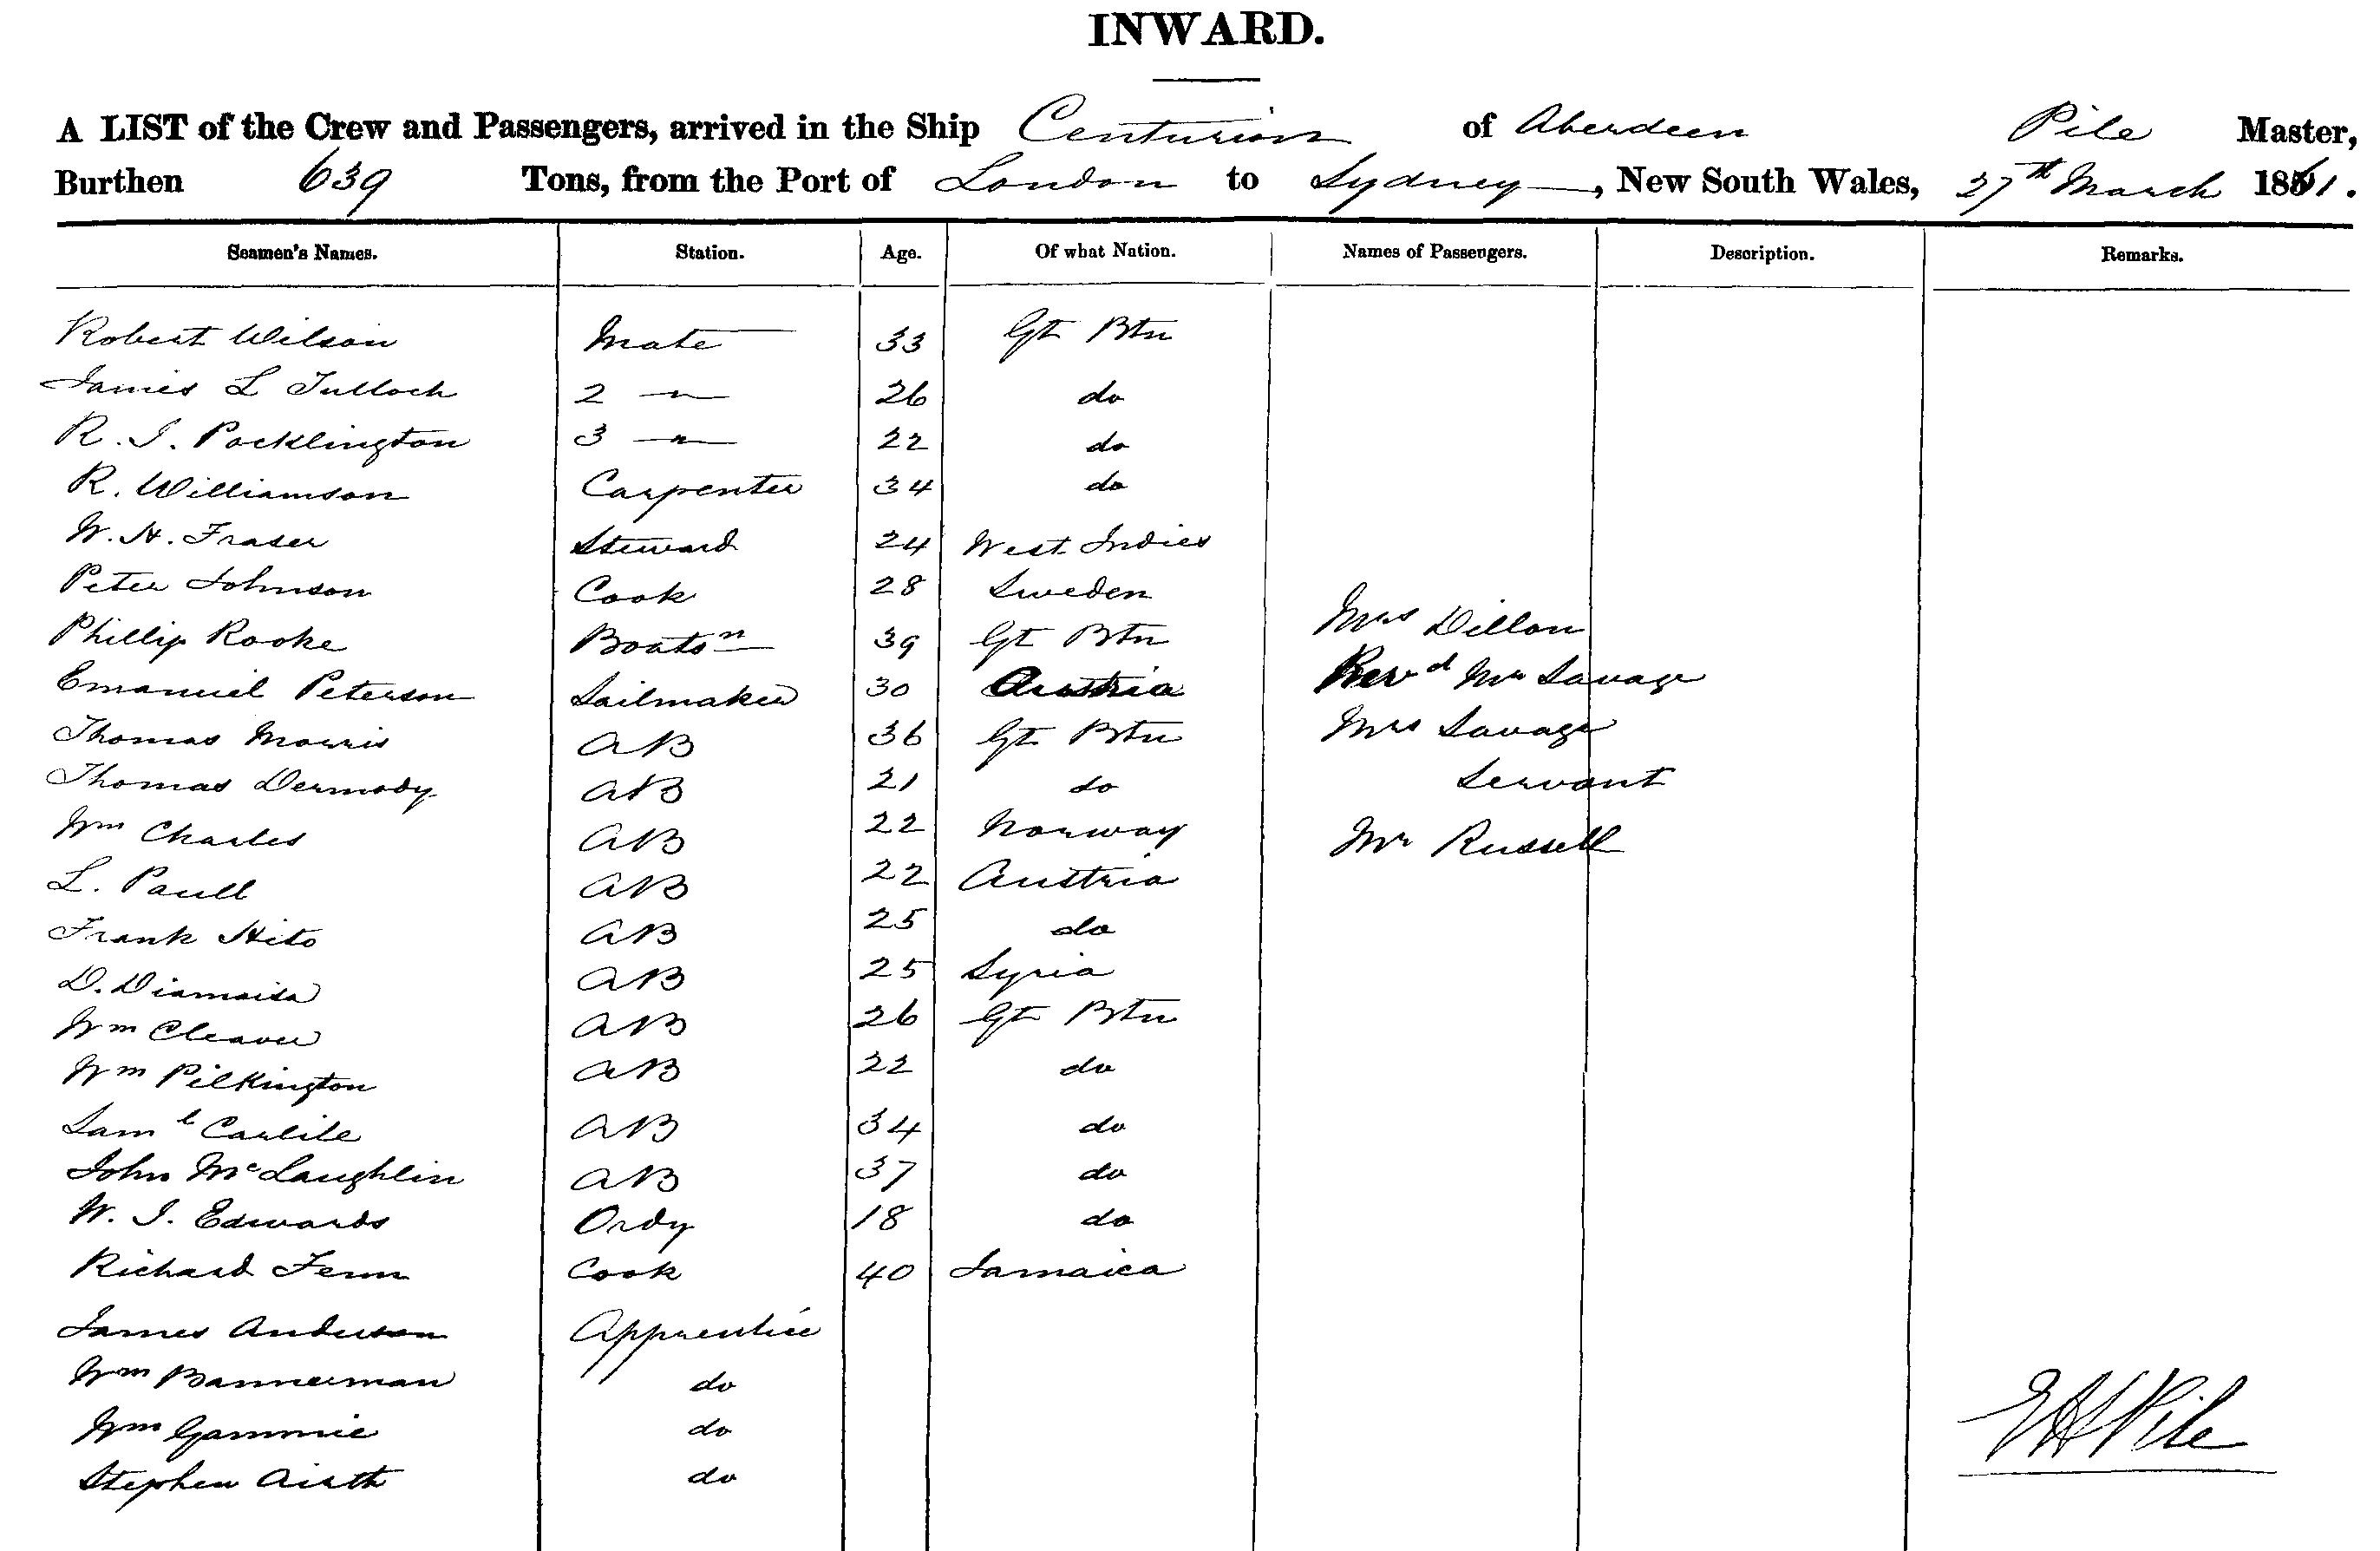 INWARD.
A LIST of the Crew and Passengers, arrived in the Ship Centurion of Aberdeen Pile Master,
Burthen 639 Tons, from the Port of London to Sydney, New South Wales, 27th March 1861.
Seamen's Names. Station. Age. Of what Nation. Names of Passengers. Description. Remarks.
Robert Wilson Mate 33 Gt Btn
James L Tulloch 2 〃 26 do
R. J. Pocklington 3 〃 22 do
R. Williamson Carpenter 34 do
W. H. Fraser Steward 24 West Indies
Peter Johnson Cook 28 Sweden
Phillip Rooke Boatsn 39 Gt Btn Mrs Dillon
Emanuel Peterson Sailmaker 30 Austria Revd Mr Savage
Thomas Morris AB 36 Gt Btn Mrs Savage
Thomas Dermody AB 21 do Servant
Wm Charles AB 22 Norway Mr Russell
L. Paull AB 22 Austria
Frank Hito AB 25 do
D. AB 25 Syria
Wm Cleaver AB 26 Gt Btn
Wm Pilkington AB 22 do
Saml Carlile AB 34 do
John McLaughlin AB 37 do
W. J. Edwards Ordy 18 do
Richard Fenn Cook 40 Jamaica
James Anderson Apprentice
Wm Bannerman do
Wm Gammie do
Stephen Airth do
Pile